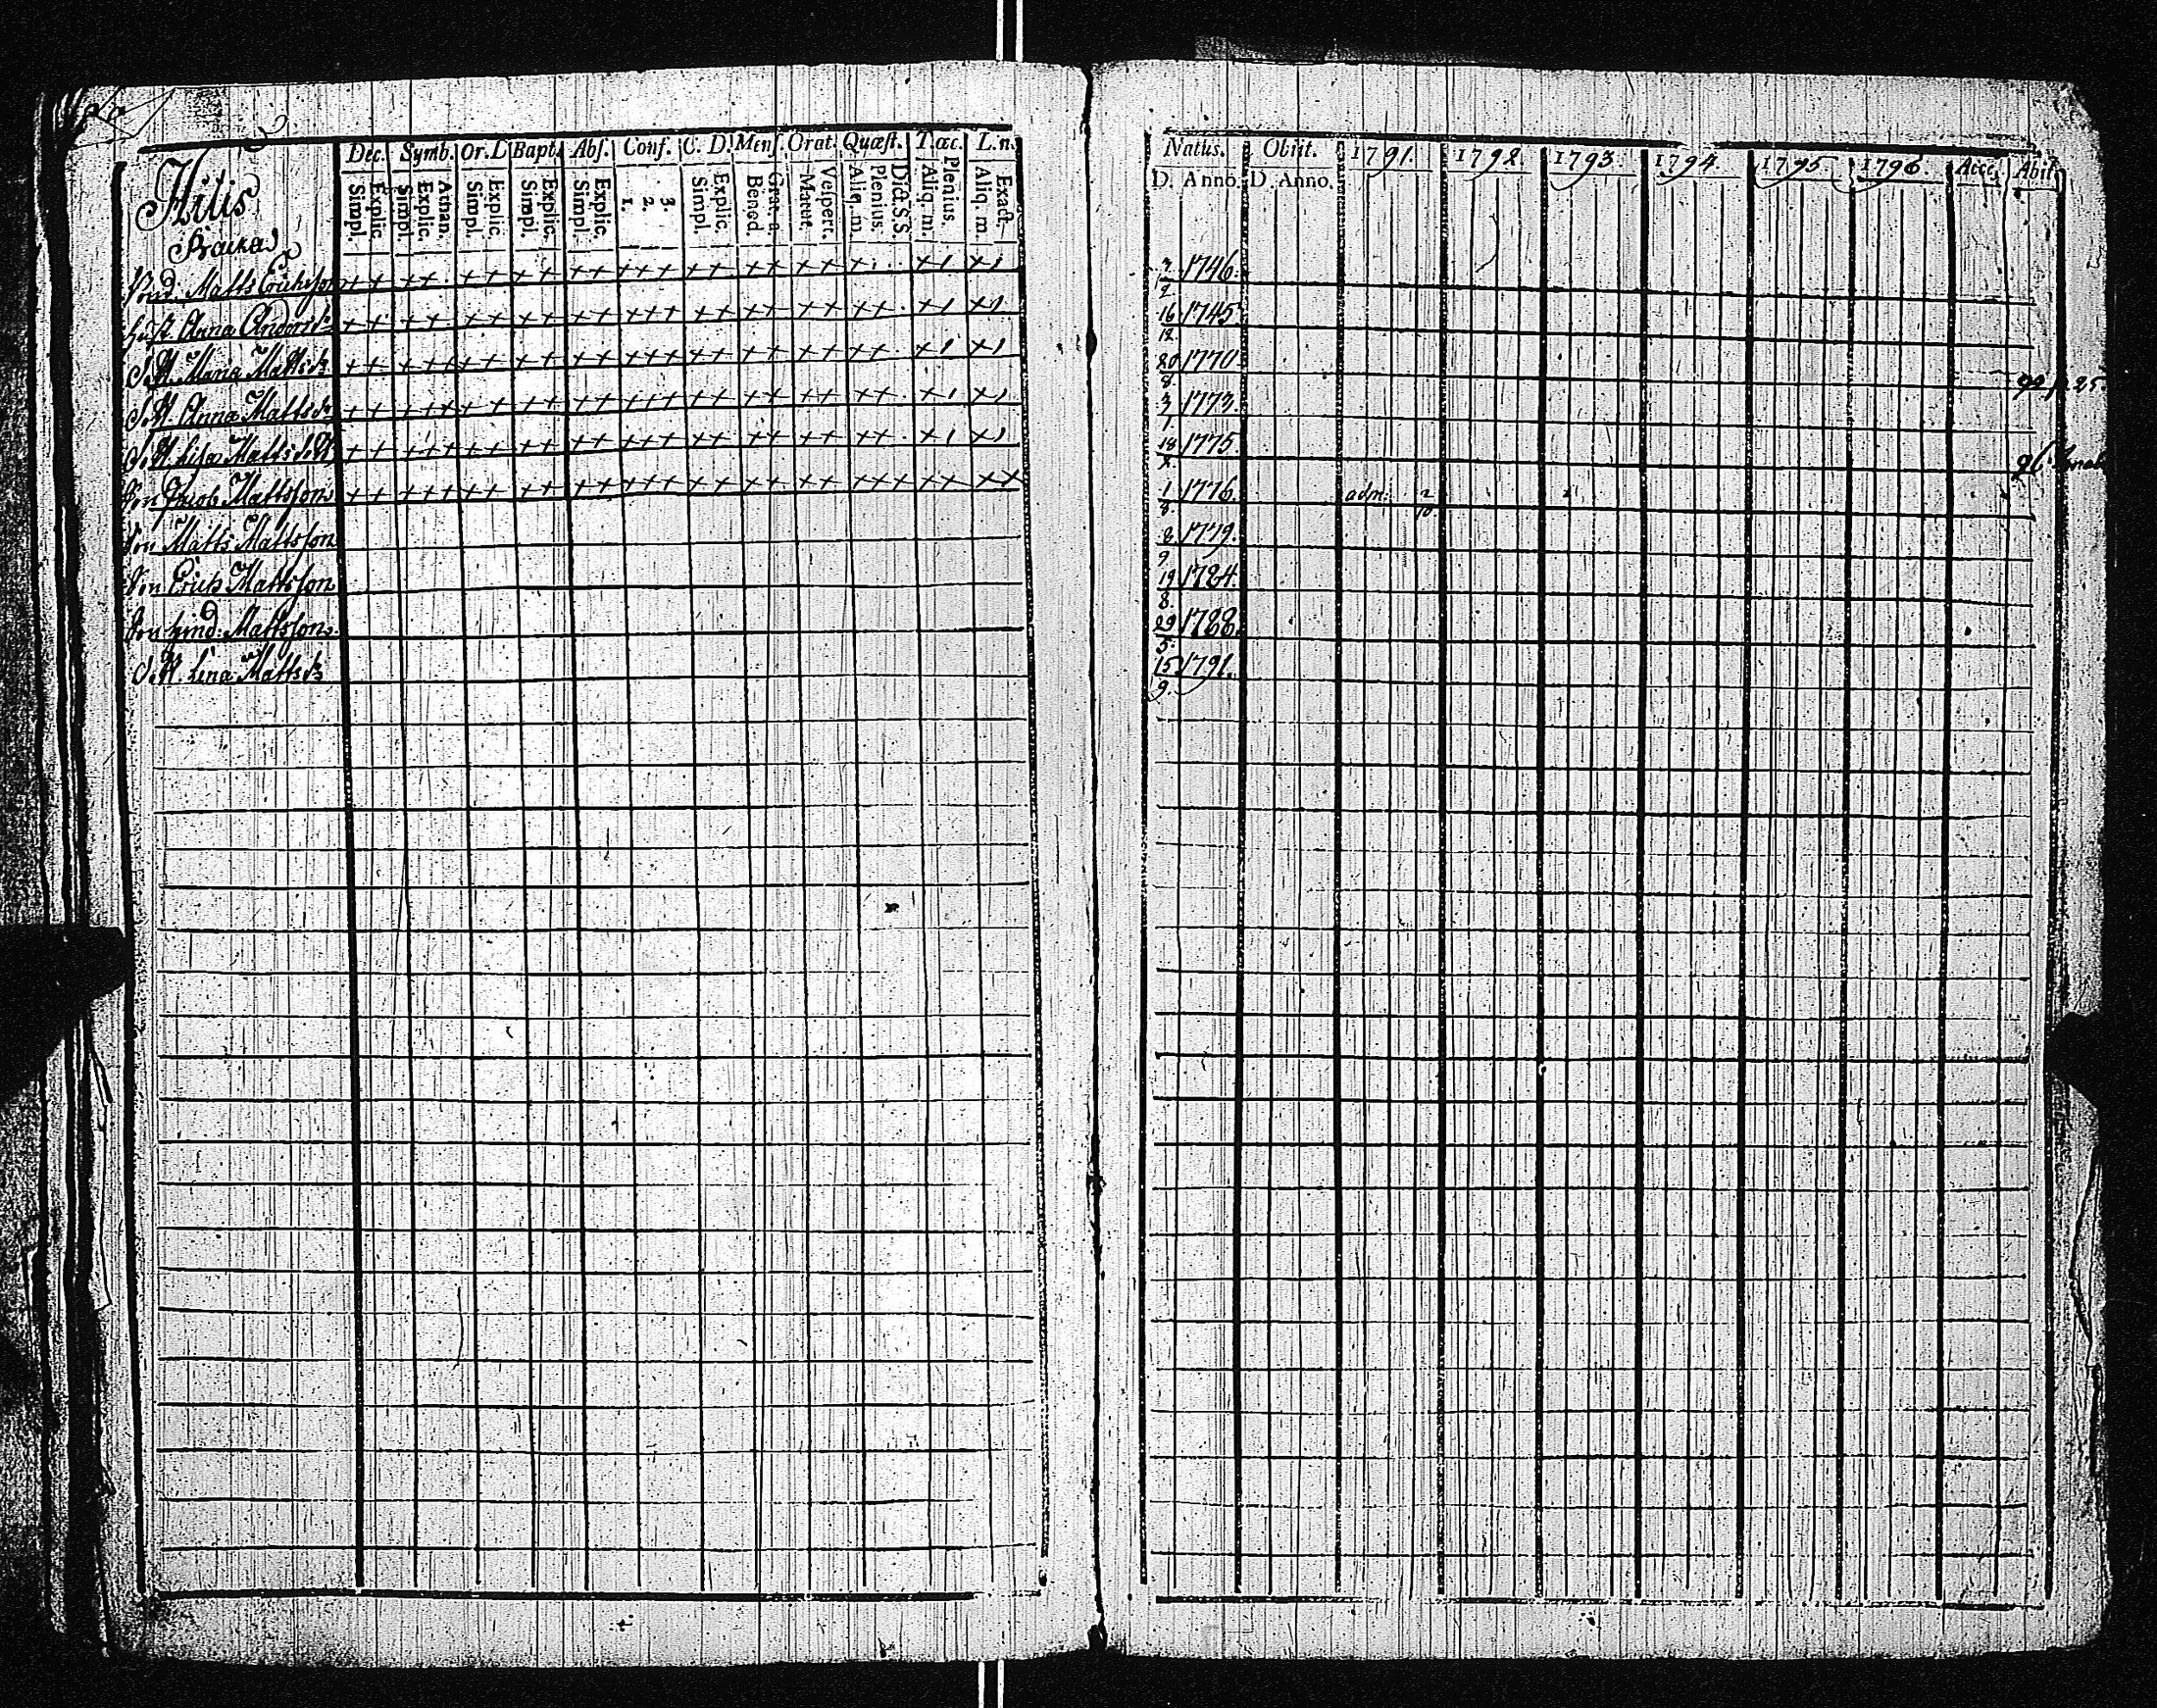 Hilis
Backas
Dec. Symb. Or. D Bapt. Abs. Conf. C. D. Mens. Orat. Quæst. T. œc. L. n.
Simpl. Explic. Simpl. Explic. Athan. Simpl. Explic. Simpl. Explic. Simpl. Explic. 1. 2. 3. Simpl. Explic. Bened. Grat. a. Matut. Vespert. Aliq. m. Plenius. Dict. S.S. Aliq. m. Plenius. Aliq. m. Exact.
Matts Erichsson
Hust Anna Andersdr
D. Maria Mattsdr
D. Anna Mattsdr
D. Lisa Mattsdr
Son Jacob Mattsson
Son Matts Mattsson
Son Erich Mattsson
Son Hind. Mattsson
D. Lena Mattsdr
Natus. Obiit. 1791. 1792. 1793. 1794. 1795. 1796. Acce. Abit
D. Anno. D. Anno.
1746.
16/12 1745
20/8 1770
3/1 1773.
18 1775.
1/8 1776. adm:
8/9 1779.
19/8 1784.
29/5 1788.
15/9 1791.